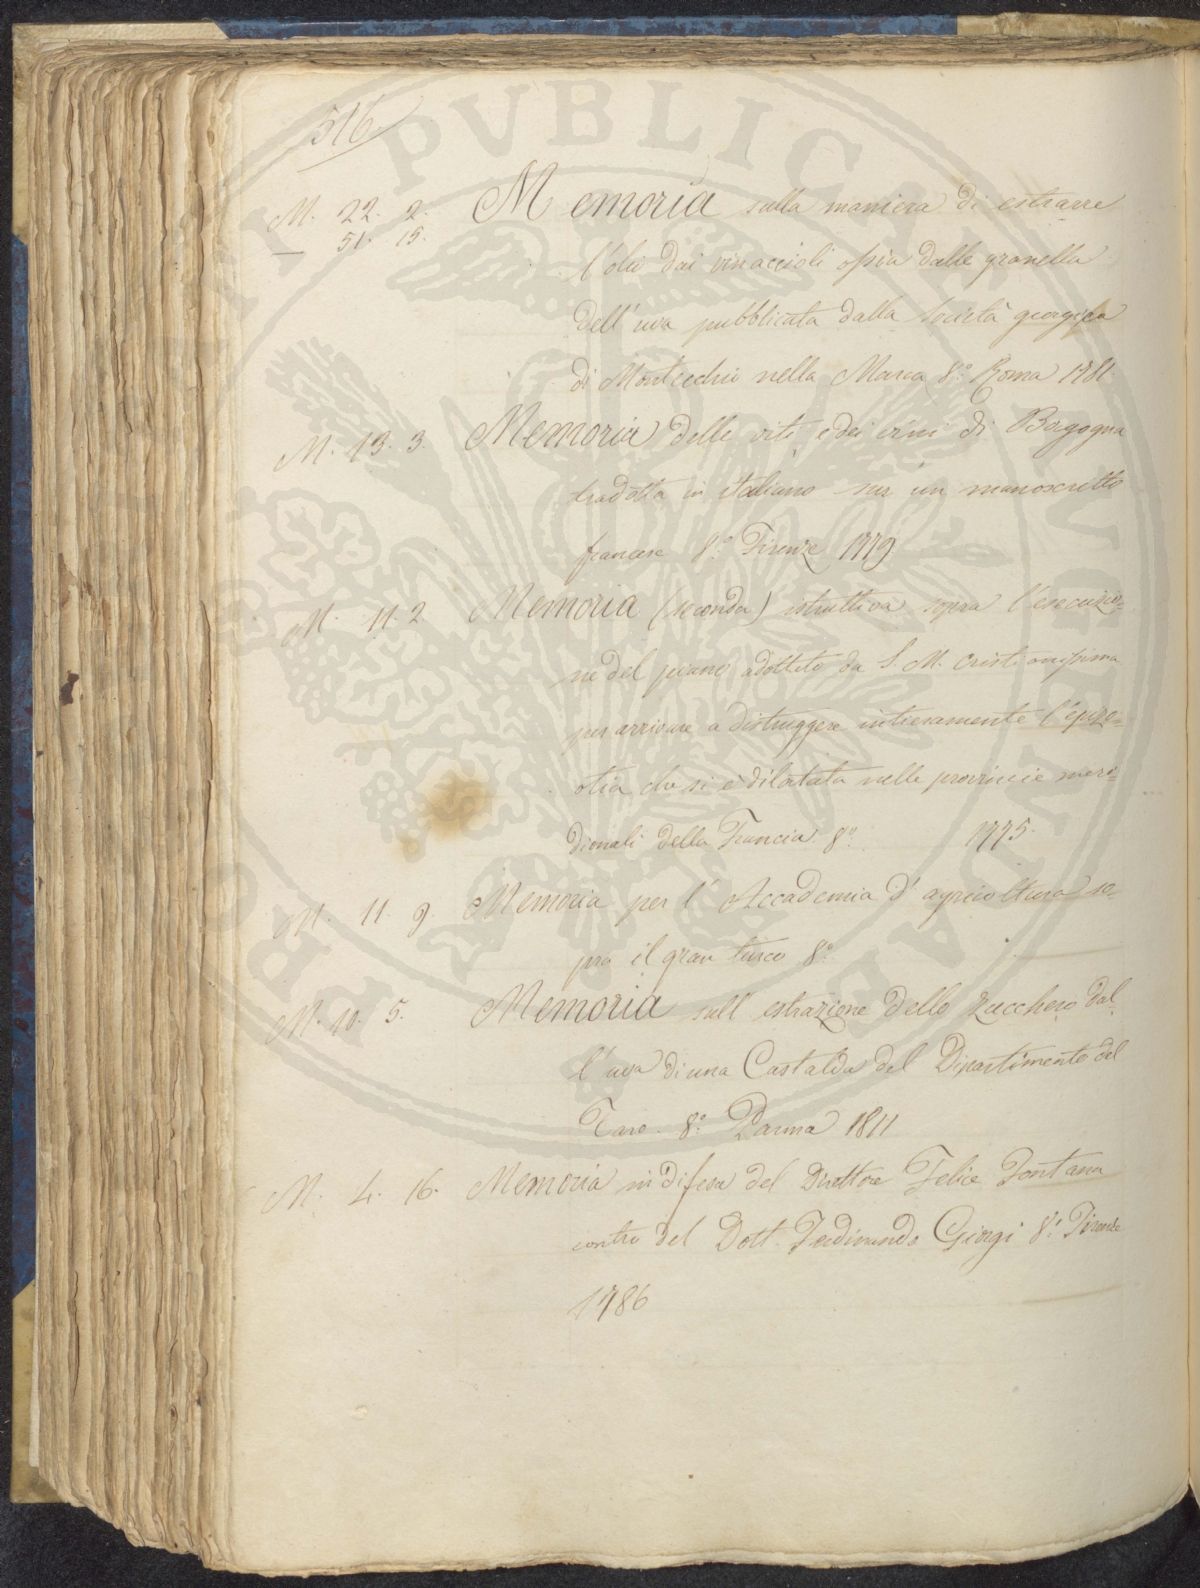 516
M. 22. 2. Memoria sulla maniera di estrarre
51. 15.
l'olio dai vinaccioli ossia dalle granella
dell'uva pubblicata dalla Società georgica
di Montecchio nella Marca 8.° Roma 1781.
M. 13. 3. Memoria delle viti, e dei vini di Borgogna
tradotta in italiano sur un manoscritto
francese 8.° Firenze 1779
M. 11. 2 Memoria (seconda) istruttiva sopra l'esecuzio=
ne del piano adottato da S. M. Cristianissima
per arrivare a distruggere intieramente l'epizo=
otia che si è dilatata nelle provincie meri=
dionali della Francia 8.° 1775.
M. 11. 9. Memoria per l'Accademia d'agricoltura so=
pra il gran turco 8.°
M. 10. 5. Memoria sull'estrazione dello zucchero dal=
l'uva di una Castalda del Dipartimento del
Taro. 8.° Parma 1811
M. 4. 16. Memoria in difesa del Direttore Felice Fontana
contro del Dott. Ferdinando Giorgi 8.° Firenze
1786
PUBLICAE